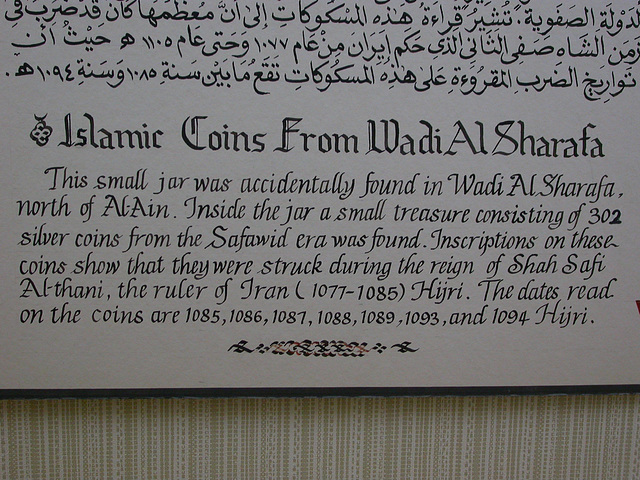 لدولة الصفوية: تشير قراءة هذه المسكوكات إلى أن معظمها كان قد ضرب في
زمن الشاه صفي الثاني الذي حكم إيران من عام ١٠٧٧ وحتى عام ١١٠٥ هـ حيث أن
تواريخ الضرب المقروءة على هذه المسكوكات تقع ما بين سنة ١٠٨٥ وسنة ١٠٩٤هـ.
Islamic Coins From Wadi Al Sharafa
This small jar was accidentally found in Wadi Al Sharafa,
north of Al-Ain. Inside the jar a small treasure consisting of 302
silver coins from the Safawid era was found. Inscriptions on these
coins show that they were struck during the reign of Shah Safi
Al-thani, the ruler of Iran (1077-1085) Hijri. The dates read
on the coins are 1085, 1086, 1087, 1088, 1089, 1093, and 1094 Hijri.